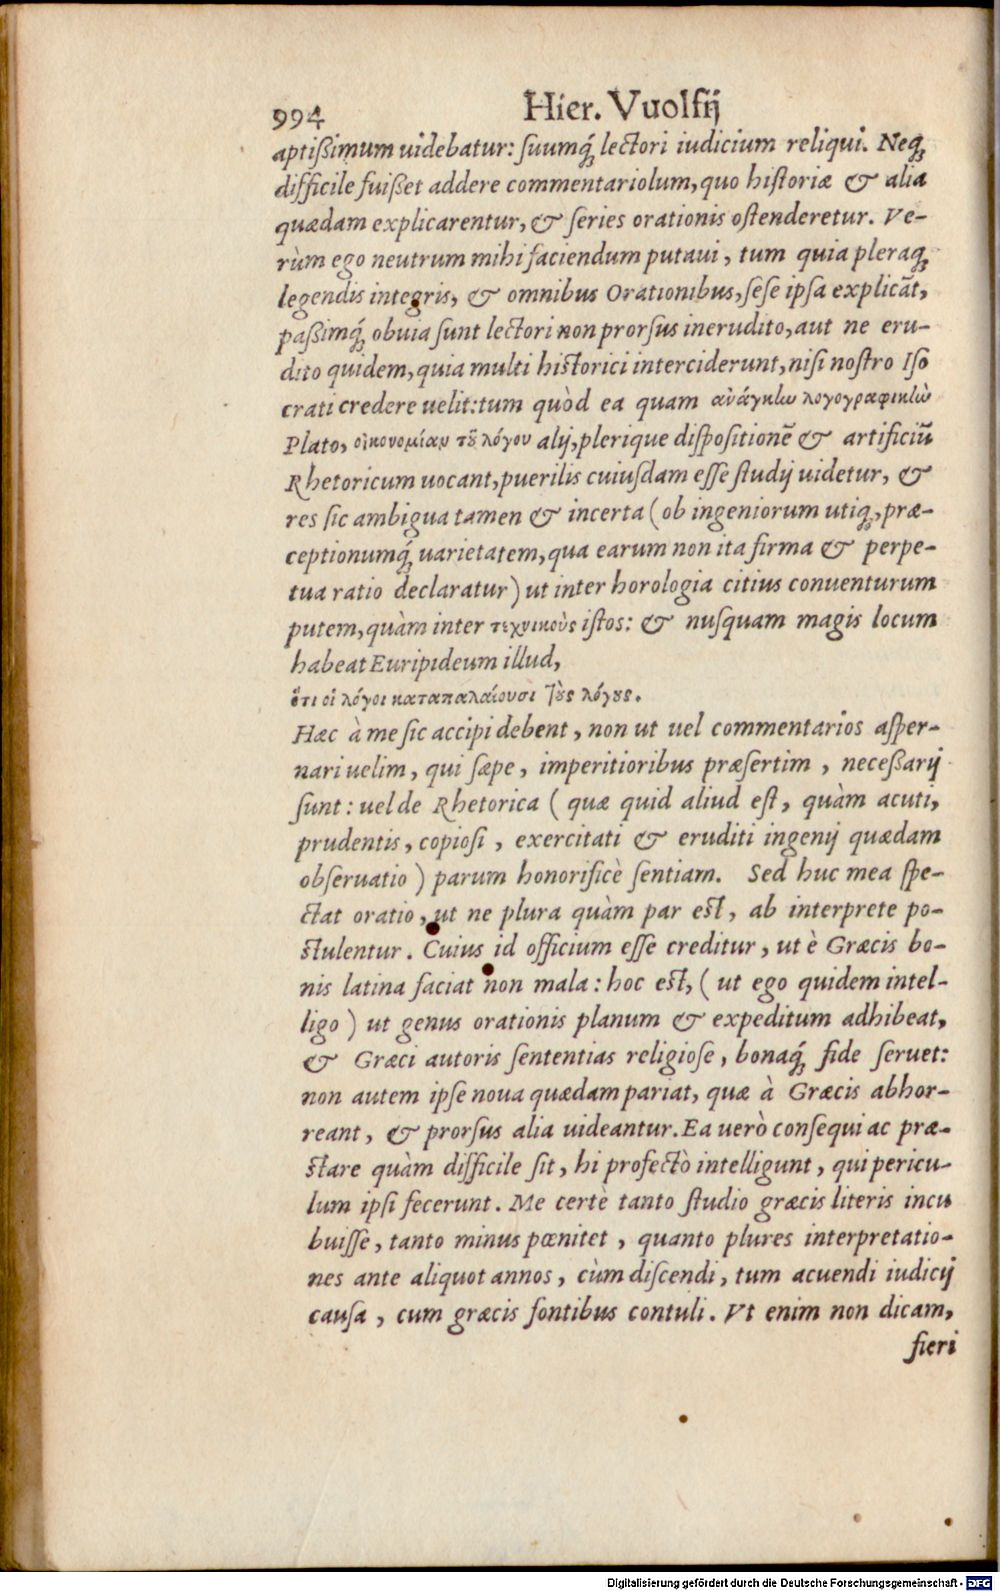 994 Hier. Vuolfij
aptißimum uidebatur: ſuumq́; lectori iudicium reliqui. Neq;
difficile fuißet addere commentariolum, quo hiſtoriæ & alia
quædam explicarentur, & ſeries orationis oſtenderetur. Ve-
rùm ego neutrum mihi faciendum putaui, tum quia pleraq;
legendis integris, & omnibus Orationibus, ſeſe ipſa explicãt,
paßimq́; obuia ſunt lectori non prorſus inerudito, aut ne eru-
dito quidem, quia multi hiſtorici interciderunt, niſi noſtro Iſo
crati credere uelit: tum quòd ea quam ἀνάγκlω λογογραφικlὼ
Plato, οἰκονομίαν τȣ͂ λόγου alij, plerique diſpoſitionẽ & artificiũ
Rhetoricum uocant, puerilis cuiuſdam eſſe ſtudij uidetur, &
res ſic ambigua tamen & incerta (ob ingeniorum utiq;, præ-
ceptionumq́; uarietatem, qua earum non ita firma & perpe-
tua ratio declaratur) ut inter horologia citius conuenturum
putem, quàm inter τεχνικοὺς iſtos: & nuſquam magis locum
habeat Euripideum illud,
ὅτι οἱ λόγοι καταπαλαίουσι τȣ̀ς λόγȣς.
Hæc à me ſic accipi debent, non ut uel commentarios aſper-
nari uelim, qui ſæpe, imperitioribus præſertim, neceßarij
ſunt: uel de Rhetorica (quæ quid aliud eſt, quàm acuti,
prudentis, copioſi, exercitati & eruditi ingenij quædam
obſeruatio) parum honorificè ſentiam. Sed huc mea ſpe-
ctat oratio, ut ne plura quàm par eſt, ab interprete po-
ſtulentur. Cuius id officium eſſe creditur, ut è Græcis bo-
nis latina faciat non mala: hoc eſt, (ut ego quidem intel-
ligo) ut genus orationis planum & expeditum adhibeat,
& Græci autoris ſententias religioſe, bonaq́; fide ſeruet:
non autem ipſe noua quædam pariat, quæ à Græcis abhor-
reant, & prorſus alia uideantur. Ea uerò conſequi ac præ-
ſtare quàm difficile ſit, hi profectò intelligunt, qui pericu-
lum ipſi fecerunt. Me certe tanto ſtudio græcis literis incu
buiſſe, tanto minus pœnitet, quanto plures interpretatio-
nes ante aliquot annos, cùm diſcendi, tum acuendi iudicij
cauſa, cum græcis fontibus contuli. Vt enim non dicam,
fieri
Digitalisierung gefördert durch die Deutsche Forschungsgemeinschaft - DFG